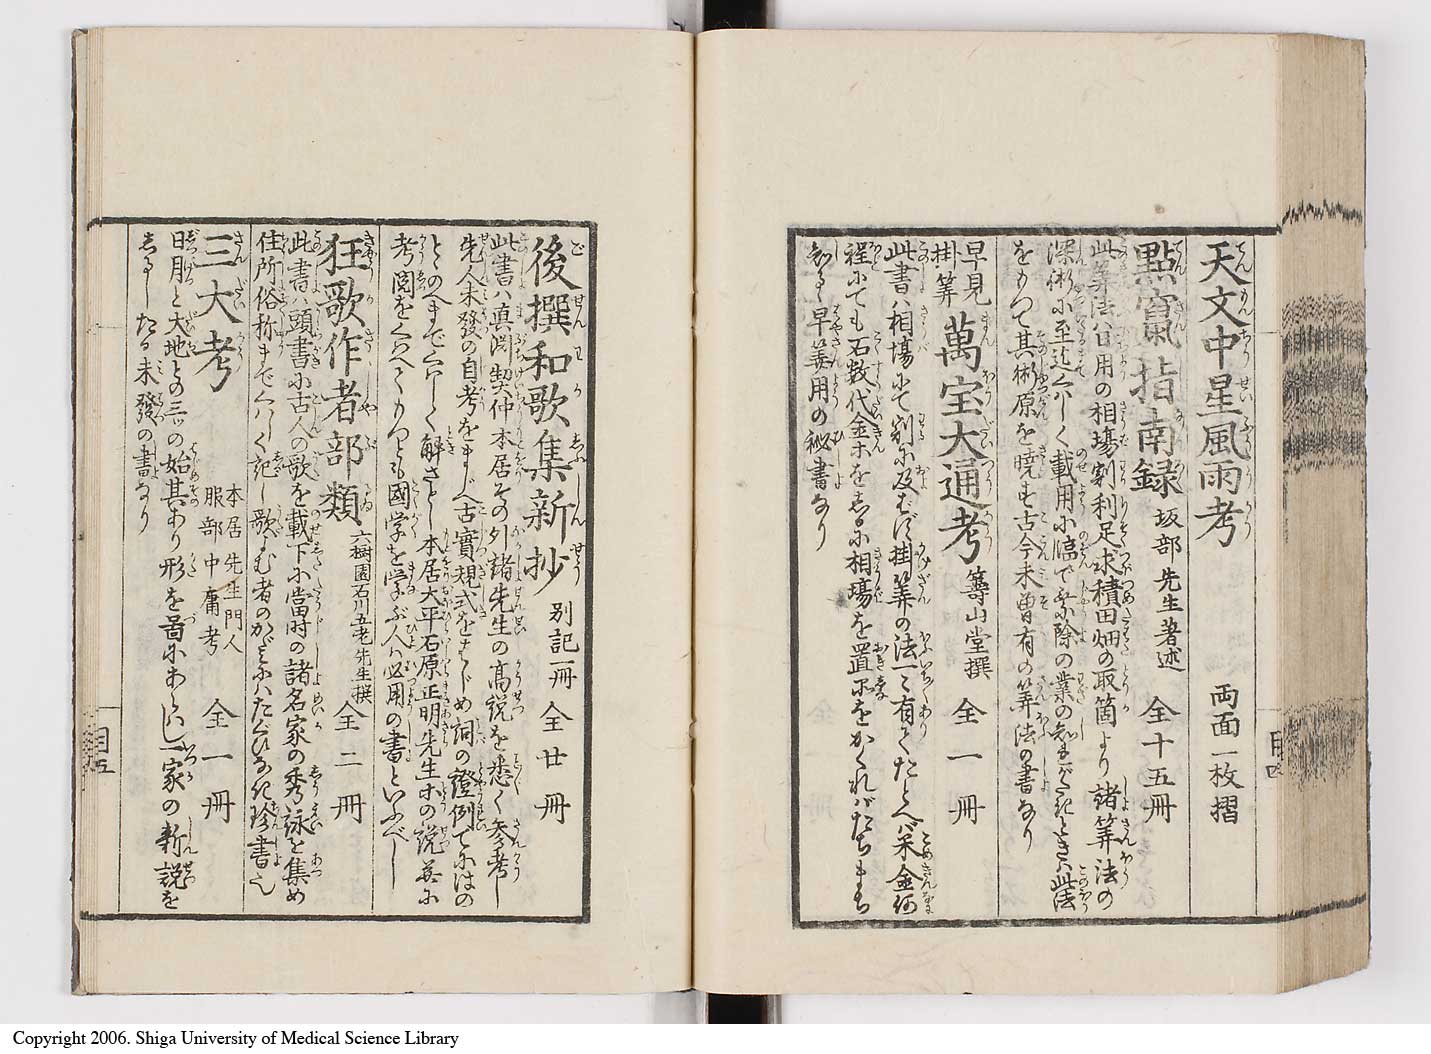 天文中星風雨考 両面一枚摺
點竄指南録 坂部先生著述 全十五冊
此筭法ハ日用の相塲割利足求積田畑の取箇より諸筭法の
深術に至迄くハしく載用に臨で乗除の業の
をもつて其術原を暁し古今未曽有の筭法の書なり
早見掛筭 萬宝大通考 籌山堂撰 全一冊
此書ハ相塲にて割に及ばず掛筭の法一ニ有てたとへバ米金何
程にても石数代金ホを るに相塲を置所をかくれバたちまち
しるゝ早筭用の秘書なり
目四
後撰和歌集新抄 別記一冊 全廿冊
此書ハ真渕契仲本居その外諸先生の高説を悉く参考し
先人未發の自考をまじへ古實規式をはじめ詞の證例てにはの
とゝのへまでくハしく解さとし本居大平石原正明先生ホの説 に
考閲をくハへてもつとも國学を学ぶ人に必用の書といふべし
狂歌作者部類 六樹園石川五老先生撰 全二冊
此書ハ頭書に古人の歌を載下に當時の諸名家の秀詠を集め
住所俗称までくハしく記し歌よむ者のかたみにハたぐひなき珍書也
三大考 本居先生門人 服部中庸考 全一冊
日月と大地との三ッの始其あり形を啚にあらハし一家の新説を
しるしたる未發の書なり
目五
Copyright 2006. Shiga University of Medical Science Library